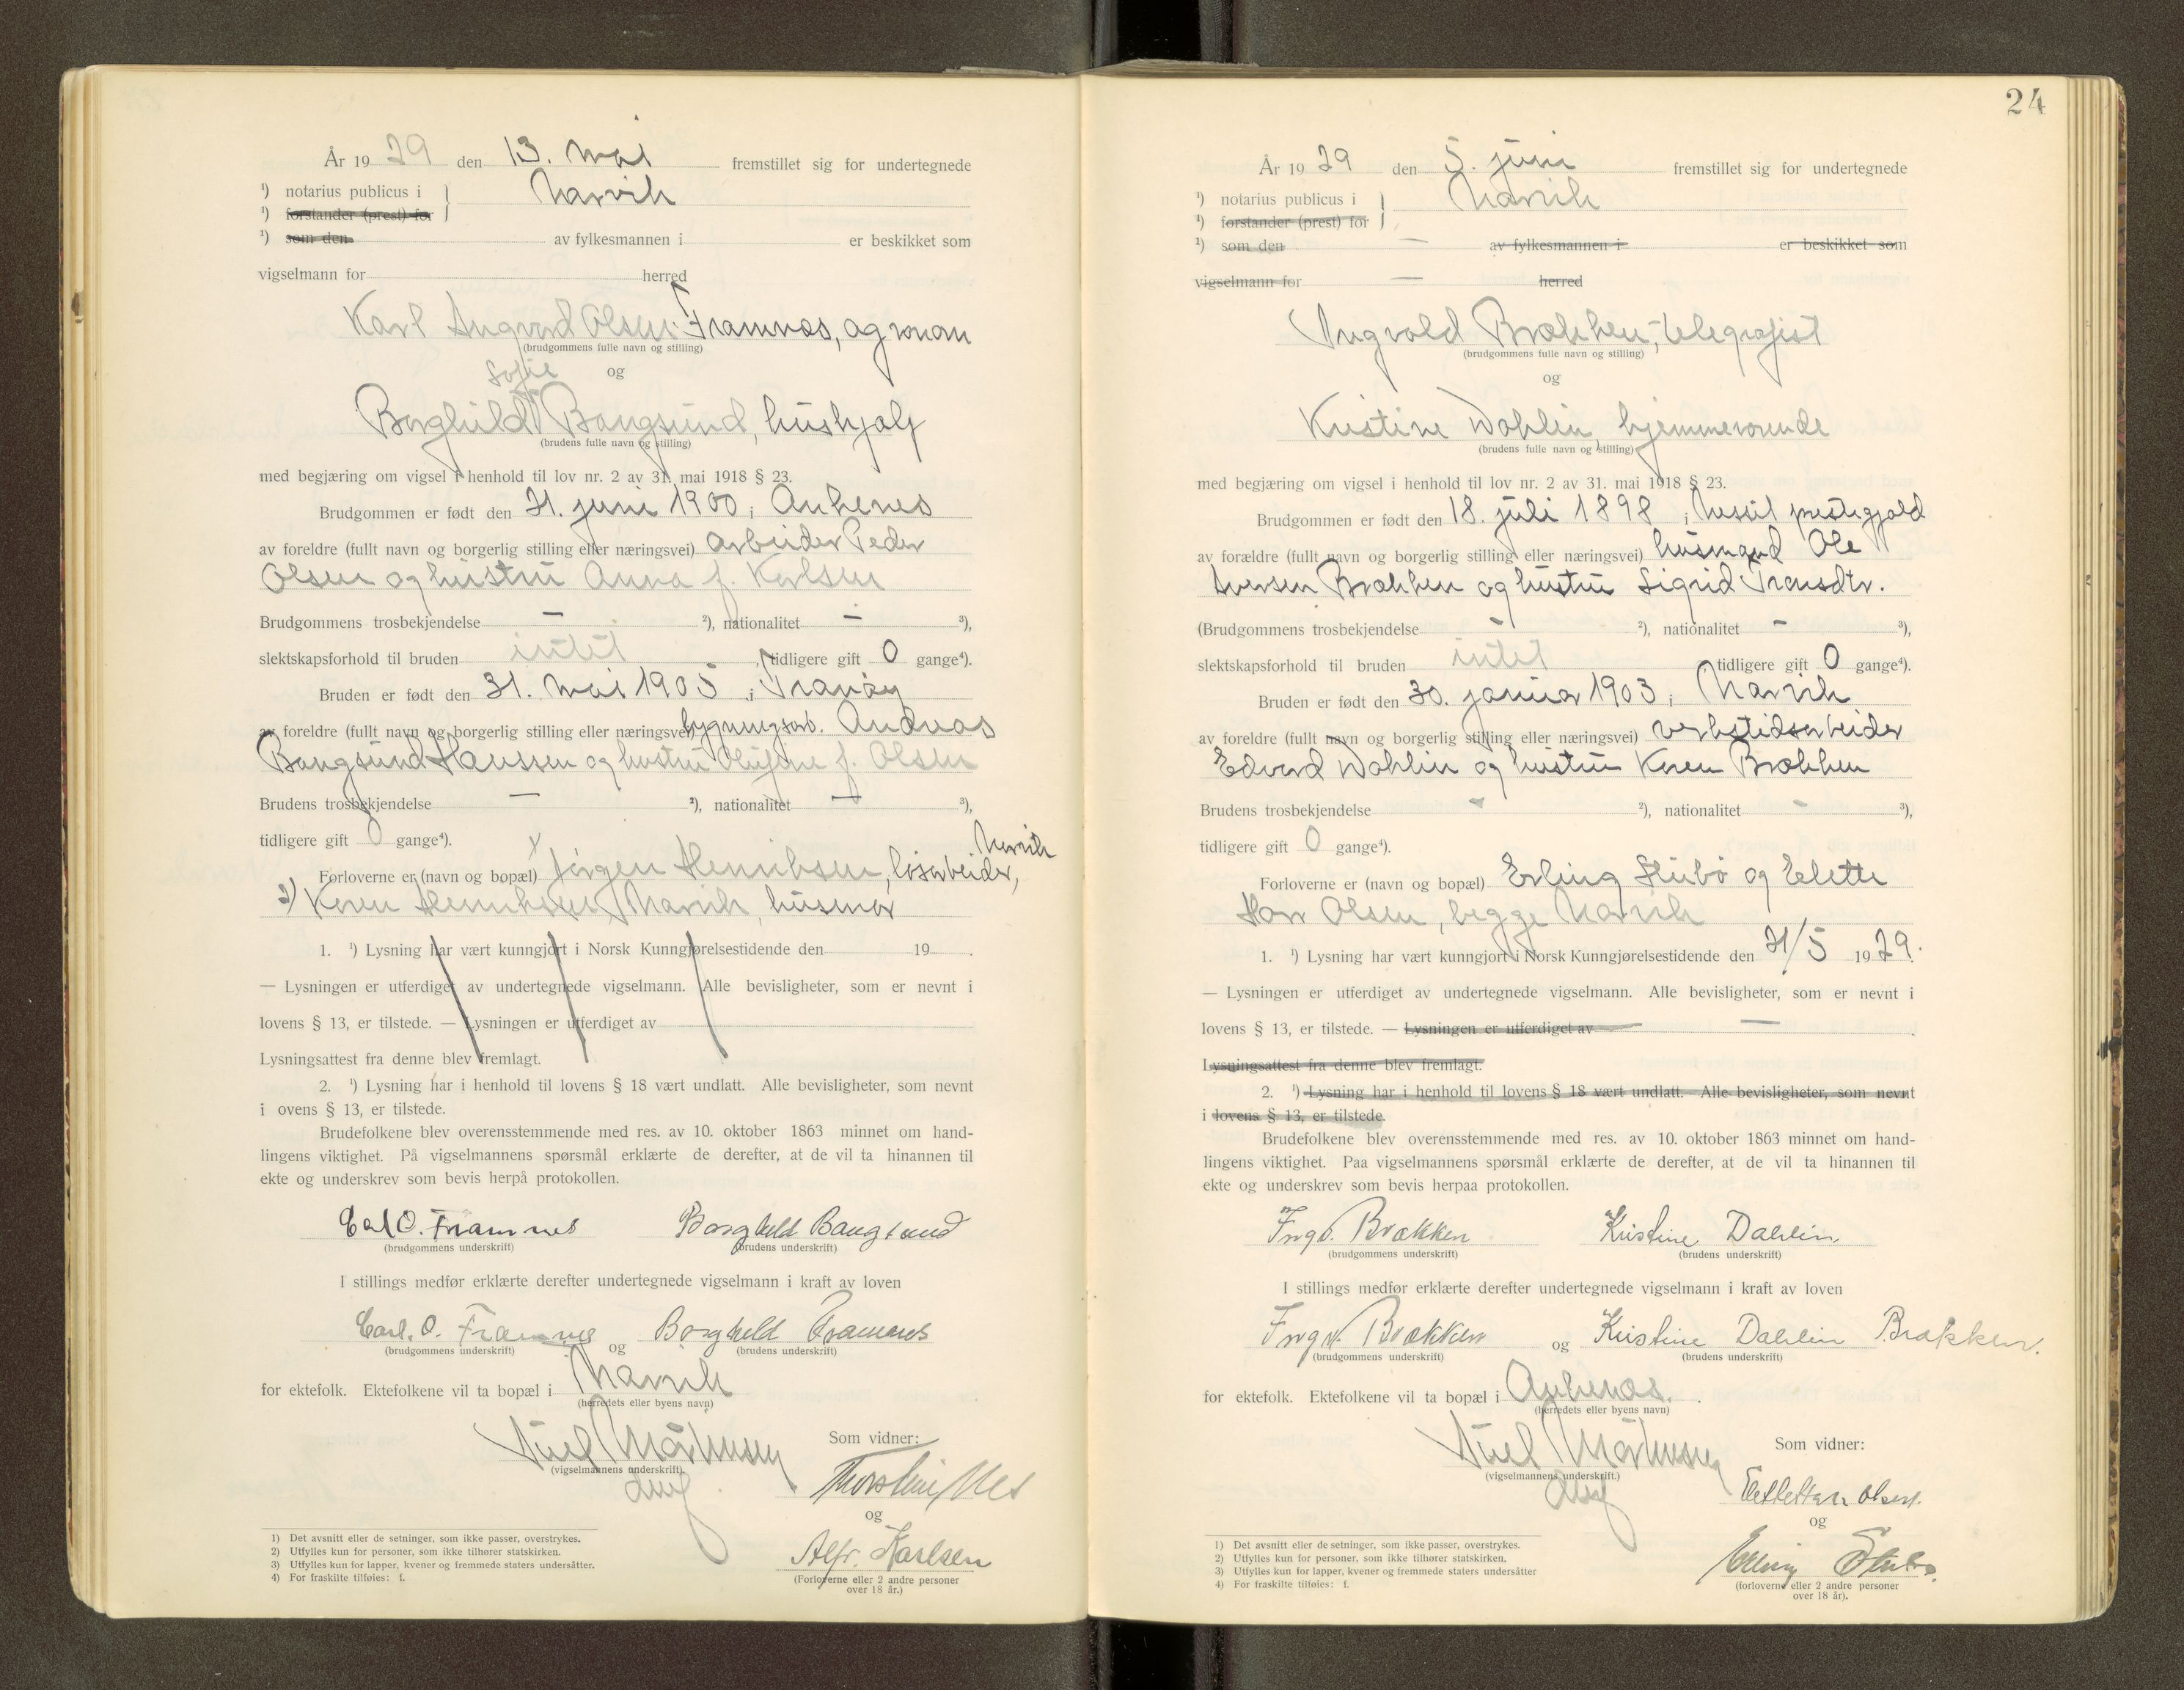 År 19 29 den 13. mai fremstillet sig for undertegnede
¹) notarius publicus i } Narvik
¹) forstander (prest) for
¹) som den av fylkesmannen i er beskikket som
vigselmann for herred
Karl Ingvard Olsen Framnæs, agronom
(brudgommens fulle navn og stilling)
Sofie og
Borghild Bangsund, hushjælp
(brudens fulle navn og stilling)
med begjæring om vigsel i henhold til lov nr. 2 av 31. mai 1918 § 23.
Brudgommen er født den 21. juni 1900 i Ankenes
av foreldre (fullt navn og borgerlig stilling eller næringsvei) arbeider Peder
Olsen og hustru Anna f. Karlsen
Brudgommens trosbekjendelse — ²), nationalitet — ³),
slektskapsforhold til bruden intet, tidligere gift 0 gange⁴).
Bruden er født den 31. mai 1905 i Tranøy
av foreldre (fullt navn og borgerlig stilling eller næringsvei) bygningsarb. Andreas
Bangsund Hanssen og hustru Olufine f. Olsen
Brudens trosbekjendelse — ²), nationalitet — ³),
tidligere gift 0 gange⁴).
Narvik
Forloverne er (navn og bopæl) Jørgen Henriksen, løsarbeider,
2) Karen Henriksen, Narvik, husmor
1. ¹) Lysning har vært kunngjort i Norsk Kunngjørelsestidende den 19 .
— Lysningen er utferdiget av undertegnede vigselmann. Alle bevisligheter, som er nevnt i
lovens § 13, er tilstede. — Lysningen er utferdiget av
Lysningsattest fra denne blev fremlagt.
2. ¹) Lysning har i henhold til lovens § 18 vært undlatt. Alle bevisligheter, som nevnt
i ovens § 13, er tilstede.
Brudefolkene blev overensstemmende med res. av 10. oktober 1863 minnet om hand-
lingens viktighet. På vigselmannens spørsmål erklærte de derefter, at de vil ta hinannen til
ekte og underskrev som bevis herpå protokollen.
Carl O. Framnes Borghild Bangsund
(brudgommens underskrift) (brudens underskrift)
I stillings medfør erklærte derefter undertegnede vigselmann i kraft av loven
Carl. O. Framnes og Borghild Framnes
(brudgommens underskrift) (brudens underskrift)
for ektefolk. Ektefolkene vil ta bopæl i Narvik
(herredets eller byens navn)
Som vidner:
(vigselmannens underskrift)
og
Alfr. Karlsen
(Forloverne eller 2 andre personer
over 18 år.)
1) Det avsnitt eller de setninger, som ikke passer, overstrykes.
2) Utfylles kun for personer, som ikke tilhører statskirken.
3) Utfylles kun for lapper, kvener og fremmede staters undersåtter.
4) For fraskilte tilføies: f.
24
År 19 29 den 5. juni fremstillet sig for undertegnede
¹) notarius publicus i } Narvik
¹) forstander (prest) for
¹) som den — av fylkesmannen i er beskikket som
vigselmann for — herred
Ingvald Brækken, telegrafist
(brudgommens fulle navn og stilling)
og
Kristine Dahlin, hjemmeværende
(brudens fulle navn og stilling)
med begjæring om vigsel i henhold til lov nr. 2 av 31. mai 1918 § 23.
Brudgommen er født den 18. juli 1898 i prestegjæld
av forældre (fullt navn og borgerlig stilling eller næringsvei) husmand Ole
Iversen Brækken og hustru Sigrid
(Brudgommens trosbekjendelse - ²), nationalitet - ³),
slektskapsforhold til bruden intet tidligere gift 0 gange⁴).
Bruden er født den 30. januar 1903 i Narvik
av foreldre (fullt navn og borgerlig stilling eller næringsvei) verkstedsarbeider
Edvard Dahlin og hustru Karen Brækken
Brudens trosbekjendelse - ²), nationalitet - ³),
tidligere gift 0 gange⁴).
Forloverne er (navn og bopæl) Erling Stubø og Elette
Olsen, begge Narvik
1. ¹) Lysning har vært kunngjort i Norsk Kunngjørelsestidende den 21/5 19 29.
— Lysningen er utferdiget av undertegnede vigselmann. Alle bevisligheter, som er nevnt i
lovens § 13, er tilstede. — Lysningen er utferdiget av —
Lysningsattest fra denne blev fremlagt.
2. ¹) Lysning har i henhold til lovens § 18 vært undlatt. Alle bevisligheter, som nevnt
i lovens § 13, er tilstede.
Brudefolkene blev overensstemmende med res. av 10. oktober 1863 minnet om hand-
lingens viktighet. Paa vigselmannens spørsmål erklærte de derefter, at de vil ta hinannen til
ekte og underskrev som bevis herpaa protokollen.
Ingv. Brækken Kristine Dahlin
(brudgommens underskrift) (brudens underskrift)
I stillings medfør erklærte derefter undertegnede vigselmann i kraft av loven
Ingv. Brækken og Kristine Dahlin Brækken.
(brudgommens underskrift) (brudens underskrift)
for ektefolk. Ektefolkene vil ta bopæl i Ankenes.
(herredets eller byens navn)
Som vidner:
(vigselmannens underskrift.)
Olsen.
og
Erling Stubø.
(forloverne eller 2 andre personer
over 18 år).
1) Det avsnitt eller de setninger, som ikke passer, overstrykes.
2) Utfylles kun for personer, som ikke tilhører statskirken.
3) Utfylles kun for lapper, kvener og fremmede staters undersåtter
4) For fraskilte tilføies: f.